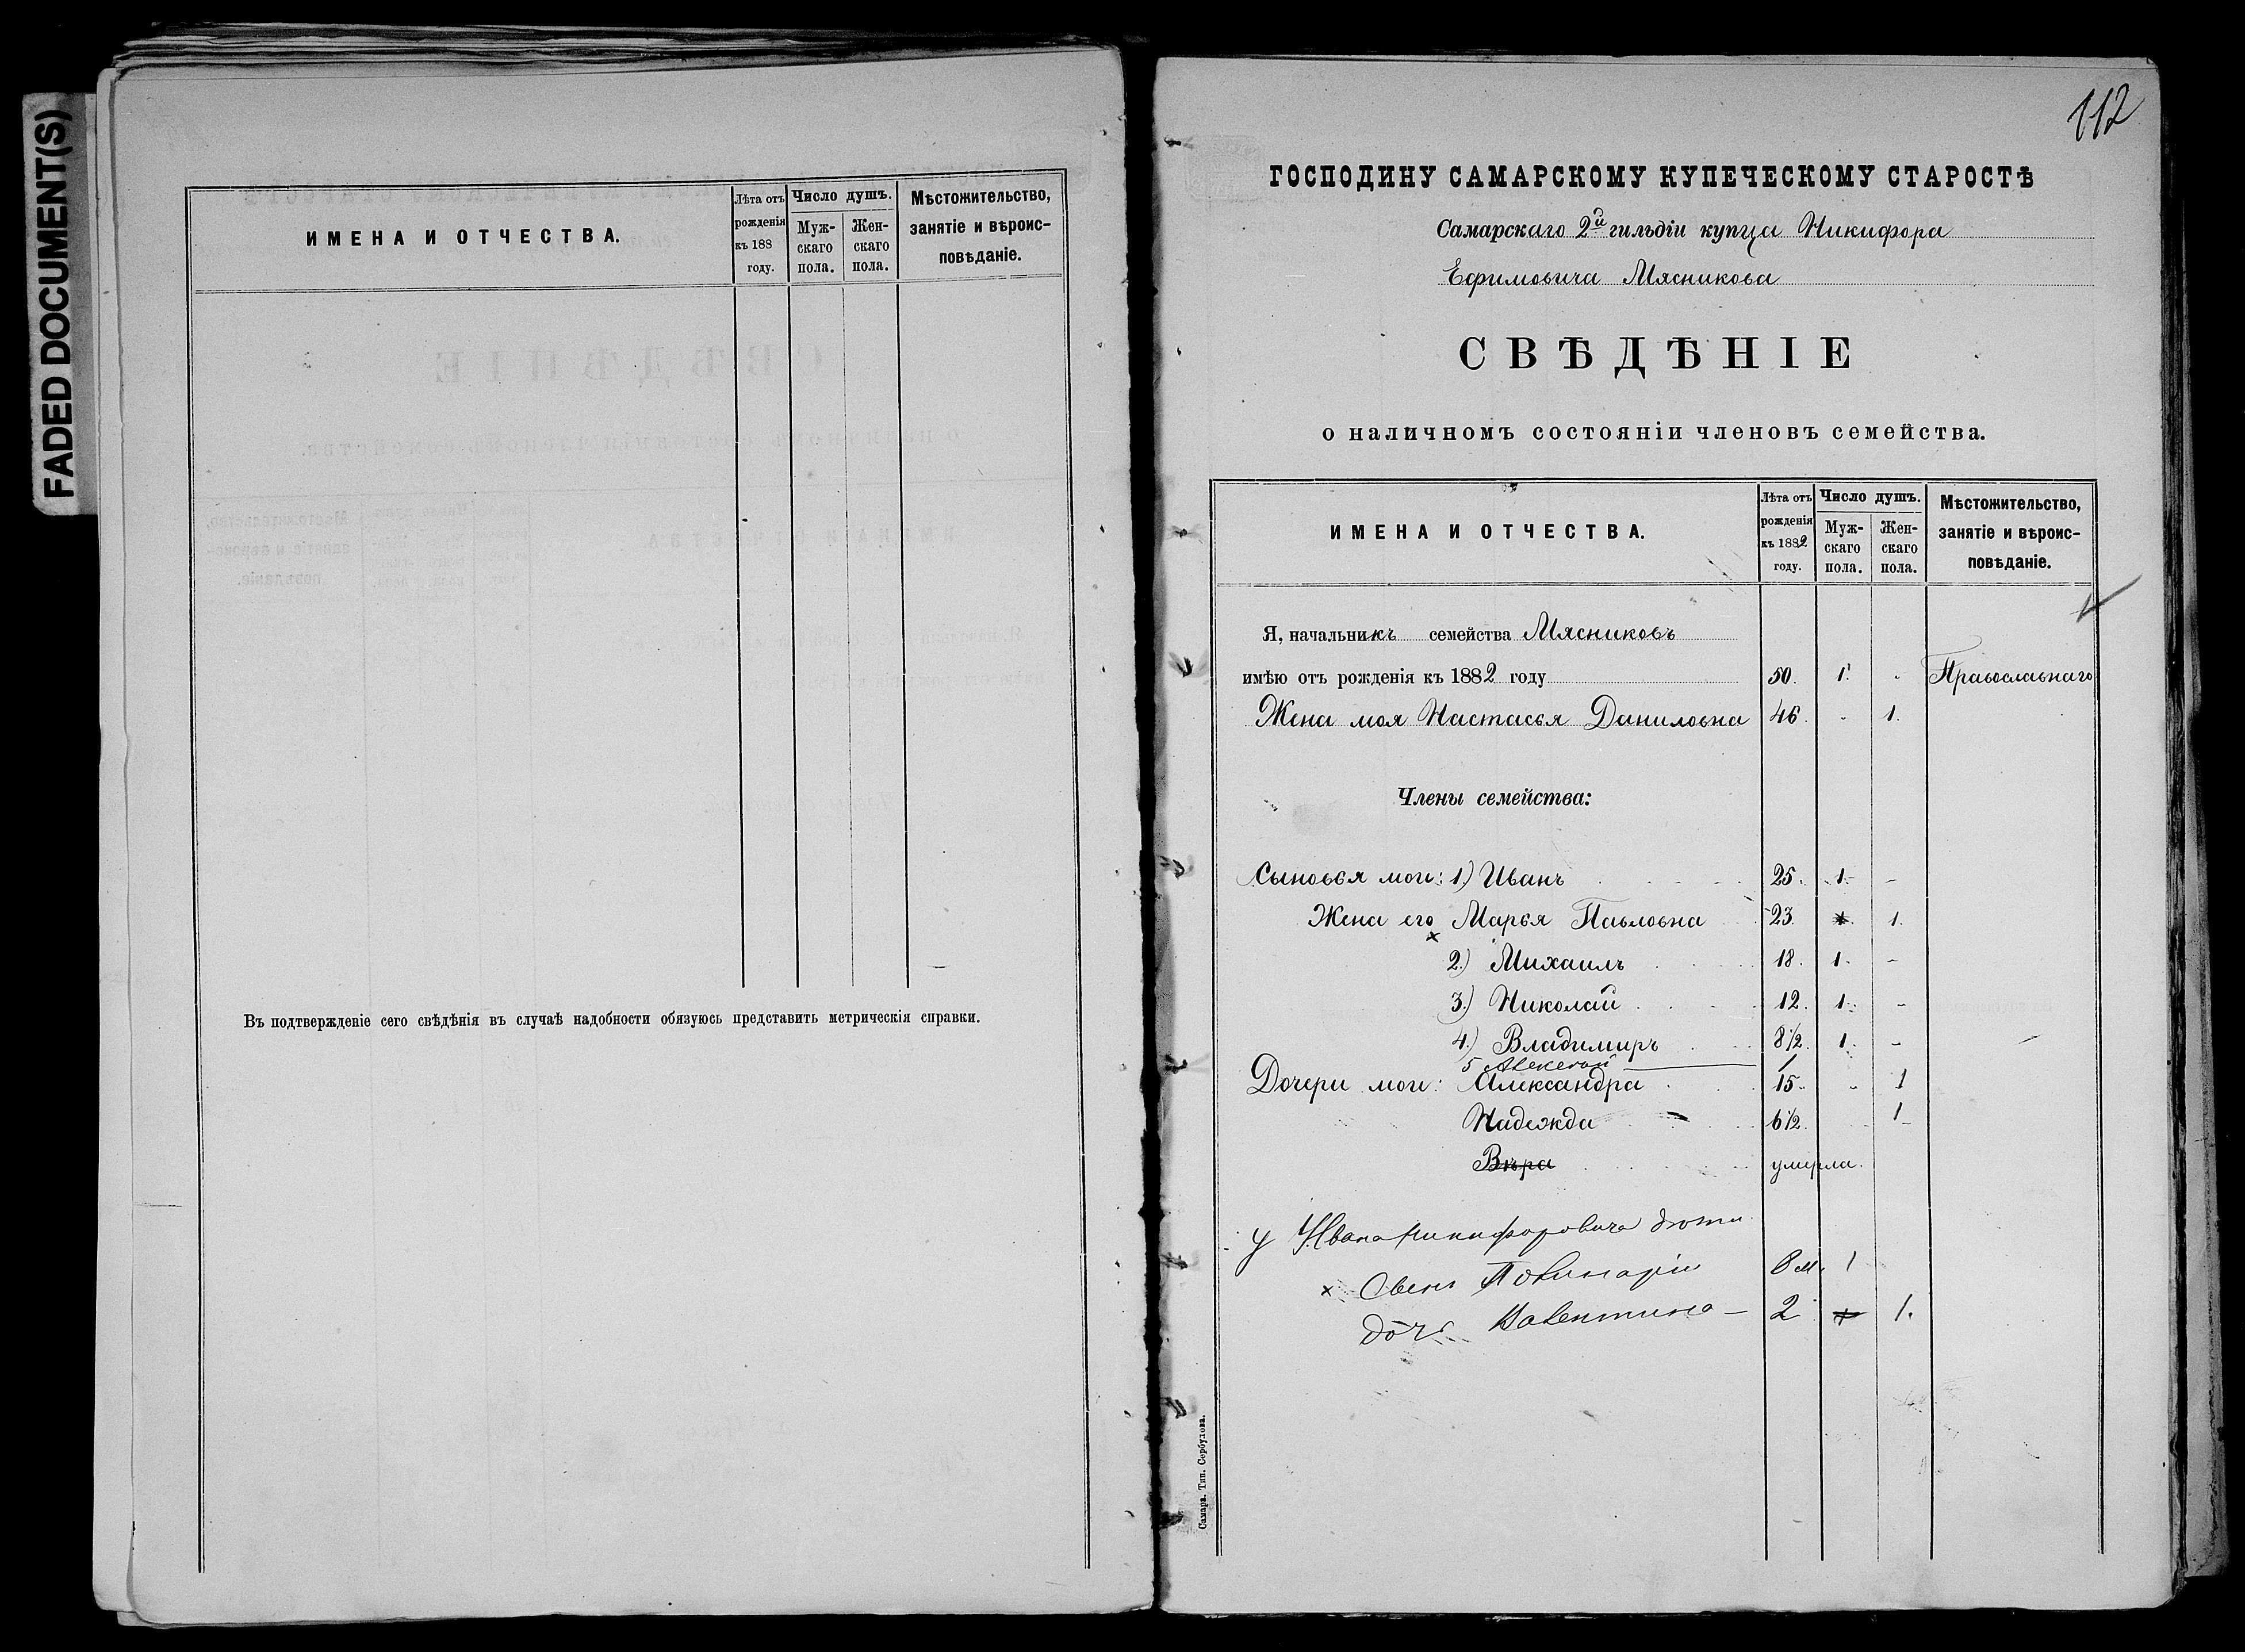 FADED DOCUMENT(S)
ИМЕНА И ОТЧЕСТВА.
Лѣта отъ рожденія къ 188 году.
Число душъ.
Мужскаго пола.
Женскаго пола.
Мѣстожительство, занятіе и вѣроисповѣданіе.
Въ подтвержденіе сего свѣдѣнія въ случаѣ надобности обязуюсь представить метрическія справки.
112
ГОСПОДИНУ САМАРСКОМУ КУПЕЧЕСКОМУ СТАРОСТѢ
Самарскаго 2й гильдіи купца Никифора
Ефимовича Мясникова
СВѢДѢНІЕ
о наличномъ состояніи членовъ семейства.
ИМЕНА И ОТЧЕСТВА.
Лѣта отъ рожденія къ 1882 году.
Число душъ.
Мужскаго пола.
Женскаго пола.
Мѣстожительство, занятіе и вѣроисповѣданіе.
Я, начальникъ семейства Мясниковъ
имѣю отъ рожденія къ 1882 году 50. 1. Православнаго
Жена моя Настасья Даниловна 46. 1.
Члены семейства:
Сыновья мои: 1) Иванъ 25. 1. -
Жена его Марья Павловна 23. 1.
2) Михаилъ 18. 1. -
3.) Николай 12. 1. -
4.) Владимиръ 8½ 1. -
5 Алексей 1
Дочери мои: Александра 15. 1
Надежда 6½ 1
Вѣра умерла.
у Ивана Никифоровича дети
х Сынъ 8 м. 1
дочь Валентина — 2 1.
Самара. Тип. Сербулова.